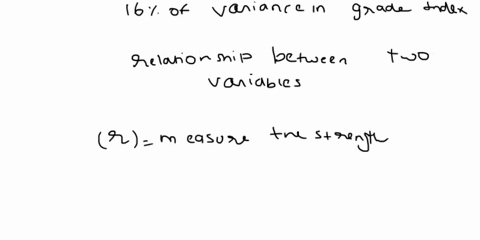 16% of variance in grade Index
relationship between two
variables
(r) = measure the strength